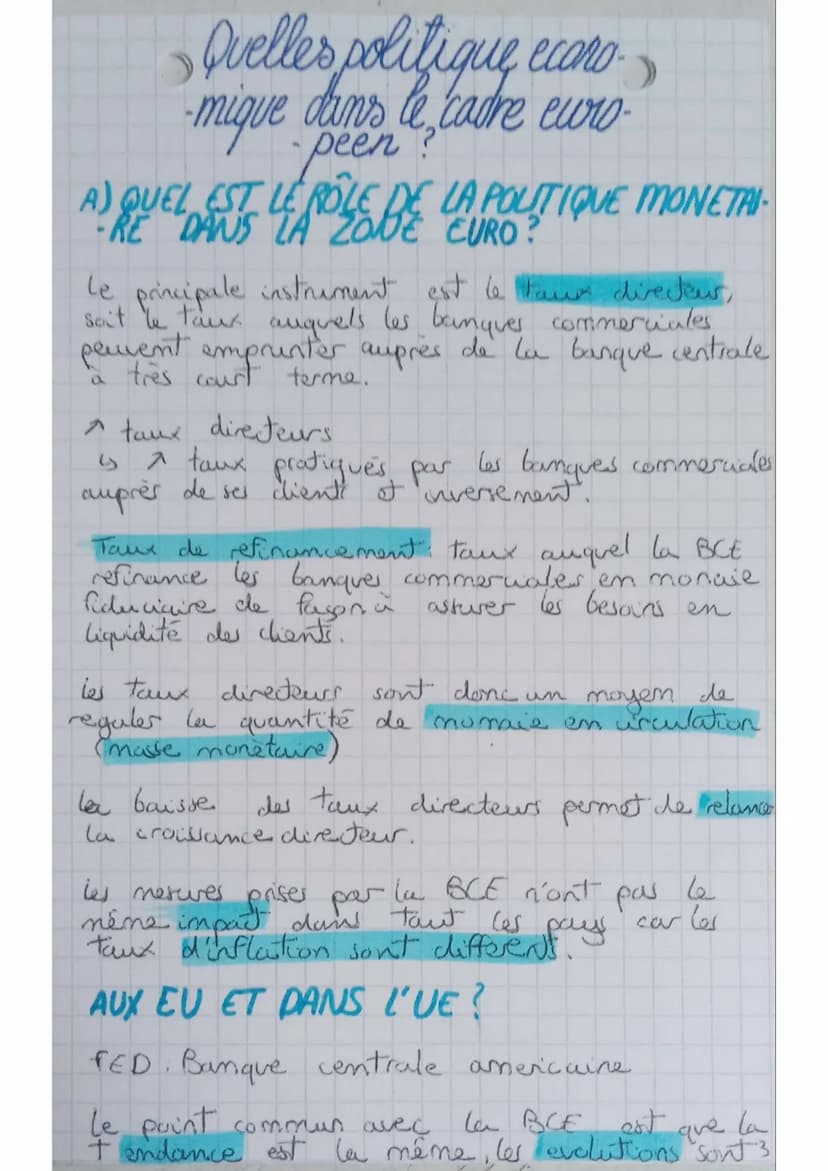 Quelles politique econo-
-mique dans le cadre euro-
-peen ?
A) QUEL EST LE RÔLE DE LA POLITIQUE MONETAI-
-RE DANS LA ZONE EURO ?
Le principale instrument est le taux directeur,
soit le taux auquels les banques commerciales
peuvent emprunter auprès de la banque centrale
à très court terme.
↗ taux directeurs
↳ ↗ taux pratiqués par les banques commerciales
auprès de ses clients et inversement.
Taux de refinancement: taux auquel la BCE
refinance les banques commerciales en monaie
fiduciaire de façon à assurer les besoins en
liquidité des clients.
les taux directeurs sont donc un moyen de
reguler la quantité de monnaie en circulation
(masse monètaire)
la baisse des taux directeurs permet de relance
la croissance directeur.
les mesures prises par la BCE n'ont pas le
même impact dans tout les pays car les
taux d'inflation sont différents.
AUX EU ET DANS L'UE ?
FED. Banque centrale americaine
Le point commun avec la BCE est que la
tendance est la même, les evolutions sont